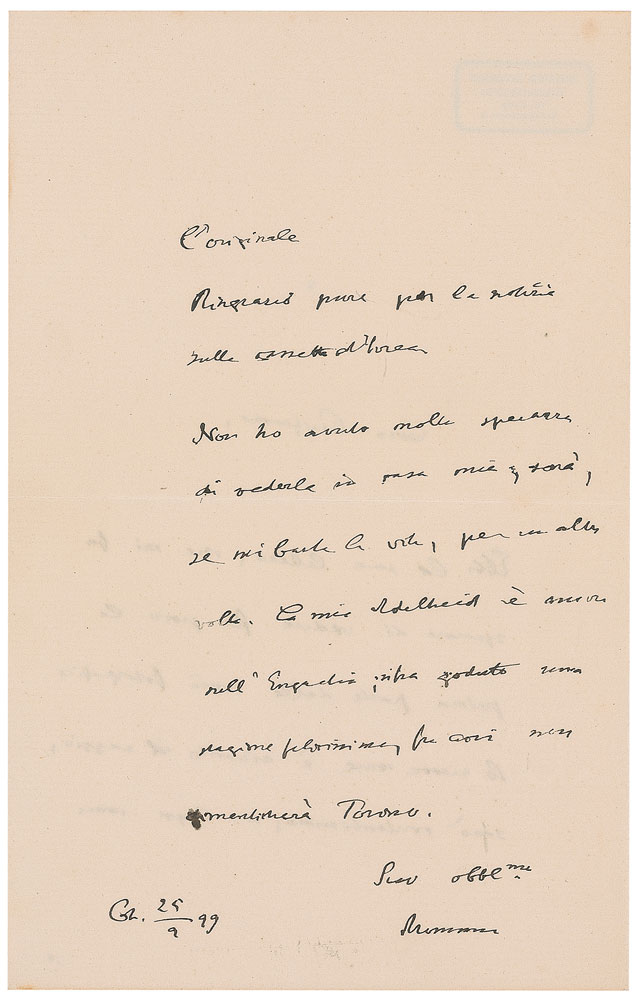 l'originale
Ringrazio pure per la notizia
sulla cassetta d'Ivrea
Non ho avuto molta speranza
di vederla in casa mia; sarà,
se mi basta la vita, per un altra
volta. La mia Adelheid è ancora
nell' Engadin; vi ha goduto una
stagione felicissima, fra così non
dimenticherà
Suo obbl.mo
Mommsen
Ch. 25/9 99